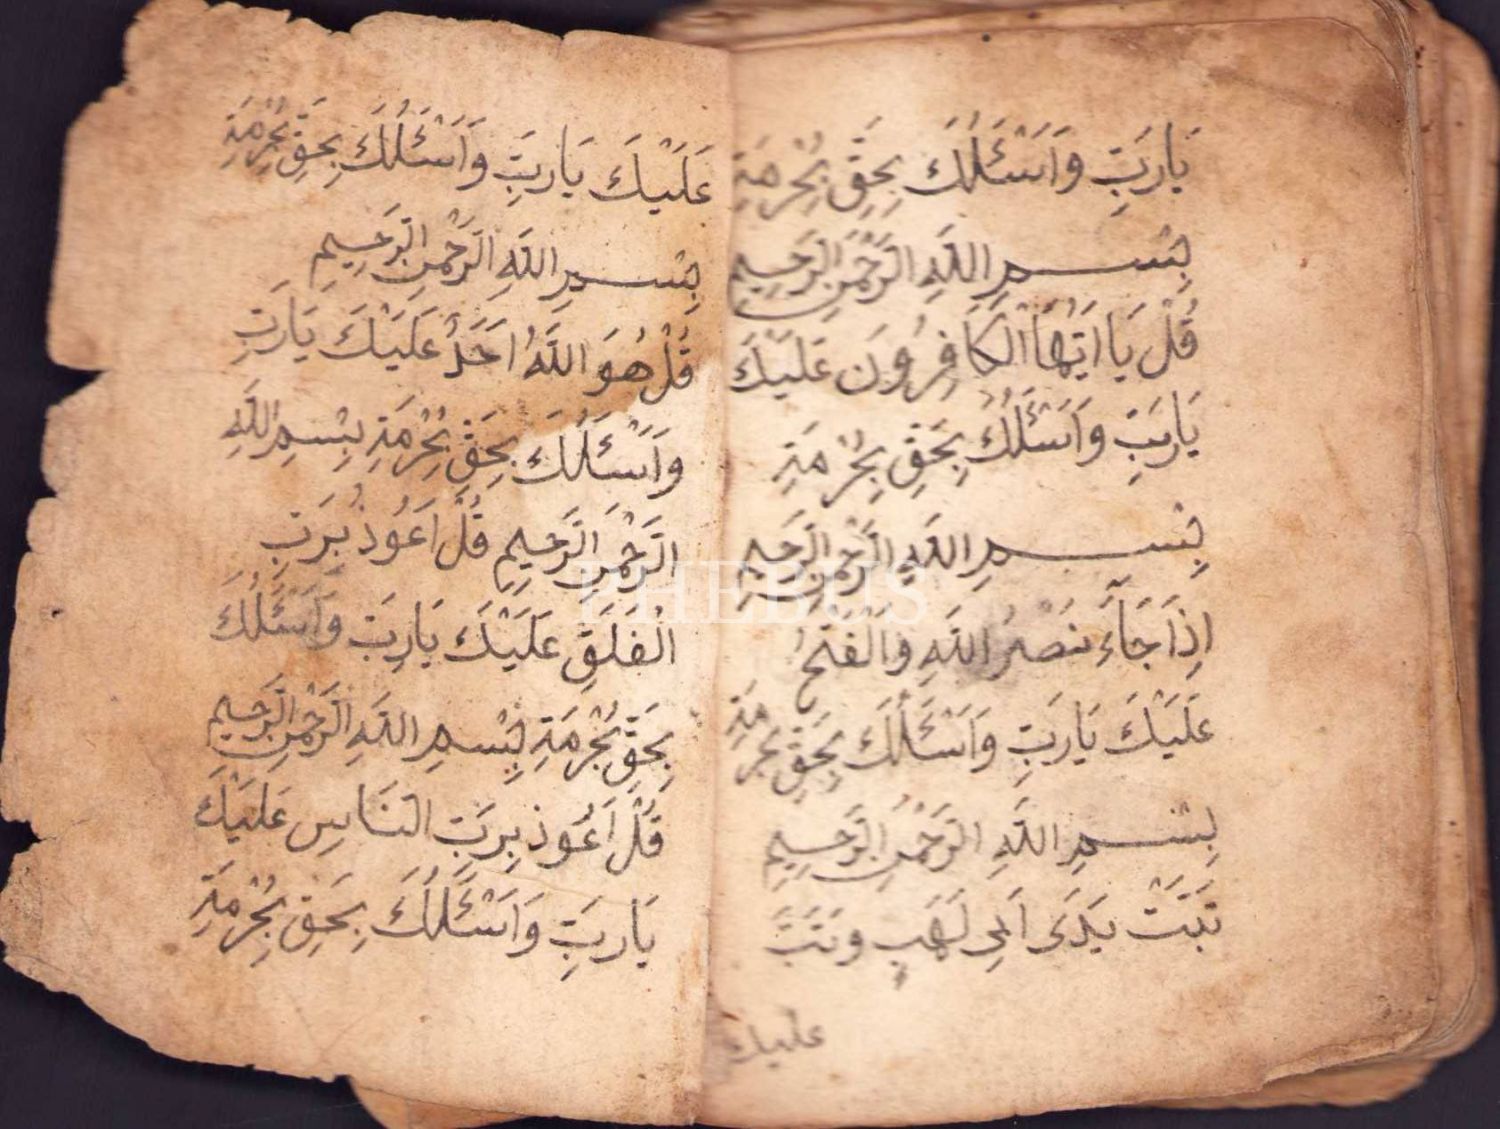 يَارَبِّ وَاَسْئَلُكَ بِحَقِّ بِحُرْمَةِ
بِسْمِ اللّٰهِ الرَّحْمٰنِ الرَّحِيمِ
قُلْ يَا اَيُّهَا الْكَافِرُونَ عَلَيْكَ
يَارَبِّ وَاَسْئَلُكَ بِحَقِّ بِحُرْمَةِ
بِسْمِ اللّٰهِ الرَّحْمٰنِ الرَّحِيمِ
اِذَا جَآءَ نَصْرُ اللّٰهِ وَالْفَتْحُ
عَلَيْكَ يَارَبِّ وَاَسْئَلُكَ بِحَقِّ بِحُرْمَةِ
بِسْمِ اللّٰهِ الرَّحْمٰنِ الرَّحِيمِ
تَبَّتْ يَدَى اَبِى لَهَبٍ وَتَبَّ
عليك
عَلَيْكَ يَارَبِّ وَاَسْئَلُكَ بِحَقِّ بِحُرْمَةِ
بِسْمِ اللّٰهِ الرَّحْمٰنِ الرَّحِيمِ
قُلْ هُوَ اللّٰهُ اَحَدٌ عَلَيْكَ يَارَبِّ
وَاَسْئَلُكَ بِحَقِّ بِحُرْمَةِ بِسْمِ اللّٰهِ
الرَّحْمٰنِ الرَّحِيمِ قُلْ اَعُوذُ بِرَبِّ
الْفَلَقِ عَلَيْكَ يَارَبِّ وَاَسْئَلُكَ
بِحَقِّ بِحُرْمَةِ بِسْمِ اللّٰهِ الرَّحْمٰنِ الرَّحِيمِ
قُلْ اَعُوذُ بِرَبِّ النَّاسِ عَلَيْكَ
يَارَبِّ وَاَسْئَلُكَ بِحَقِّ بِحُرْمَةِ
PHEBUS